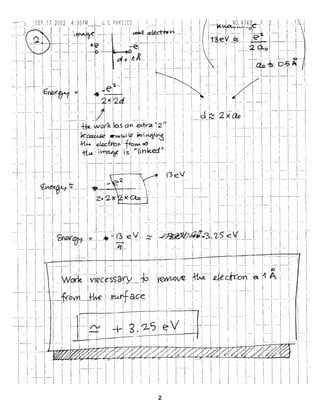 SEP. 17. 2002 4:00PM U.C. PHYSICS NO. 4740 P. 2
2.
image
real electron
+e
-e
d = 1 Å
13 eV ≈ e²
2 a₀
a₀ ≈ 0.5 Å
Energy = -e²
2×2d
the work has an extra "2"
because while bringing
the electron from ∞
the image is "linked"
d ≈ 2×a₀
Energy ≈ -e²
2·2×2×a₀
13 eV
Energy = -13 eV ≈ -3.25 eV
4
Work necessary to remove the electron @ 1 Å
from the surface
≃ + 3.25 eV
2